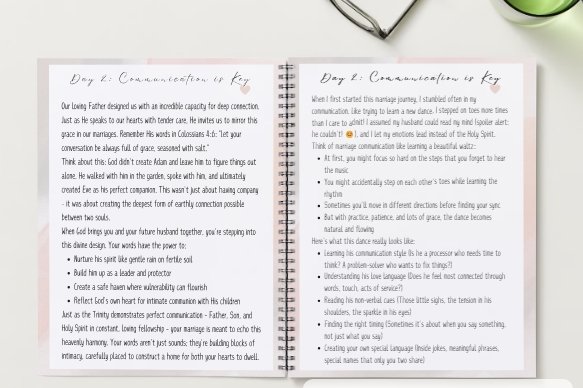 Day 2: Communication is Key
Our loving Father designed us with an incredible capacity for deep connection.
Just as He speaks to our hearts with tender care, He invites us to mirror this
grace in our marriages. Remember His words in Colossians 4:6: "let your
conversation be always full of grace, seasoned with salt."
Think about this: God didn't create Adam and leave him to figure things out
alone. He walked with him in the garden, spoke with him, and ultimately
created Eve as his perfect companion. This wasn't just about having company
- it was about creating the deepest form of earthly connection possible
between two souls.
When God brings you and your future husband together, you're stepping into
this divine design. Your words have the power to:
• Nurture his spirit like gentle rain on fertile soil
• Build him up as a leader and protector
• Create a safe haven where vulnerability can flourish
• Reflect God's own heart for intimate communion with His children
Just as the Trinity demonstrates perfect communication - Father, Son, and
Holy Spirit in constant, loving fellowship - your marriage is meant to echo this
heavenly harmony. Your words aren't just sounds; they're building blocks of
intimacy, carefully placed to construct a home for both your hearts to dwell.
Day 2: Communication is Key
When I first started this marriage journey, I stumbled often in my
communication. Like trying to learn a new dance, I stepped on toes more times
than I care to admit! I assumed my husband could read my mind (spoiler alert:
he couldn't! 😊), and I let my emotions lead instead of the Holy Spirit.
Think of marriage communication like learning a beautiful waltz:
• At first, you might focus so hard on the steps that you forget to hear
the music
• You might accidentally step on each other's toes while learning the
rhythm
• Sometimes you'll move in different directions before finding your sync
• But with practice, patience, and lots of grace, the dance becomes
natural and flowing
Here's what this dance really looks like:
• Learning his communication style (Is he a processor who needs time to
think? A problem-solver who wants to fix things?)
• Understanding his love language (Does he feel most connected through
words, touch, acts of service?)
• Reading his non-verbal cues (Those little sighs, the tension in his
shoulders, the sparkle in his eyes)
• Finding the right timing (Sometimes it's about when you say something,
not just what you say)
• Creating your own special language (Inside jokes, meaningful phrases,
special names that only you two share)